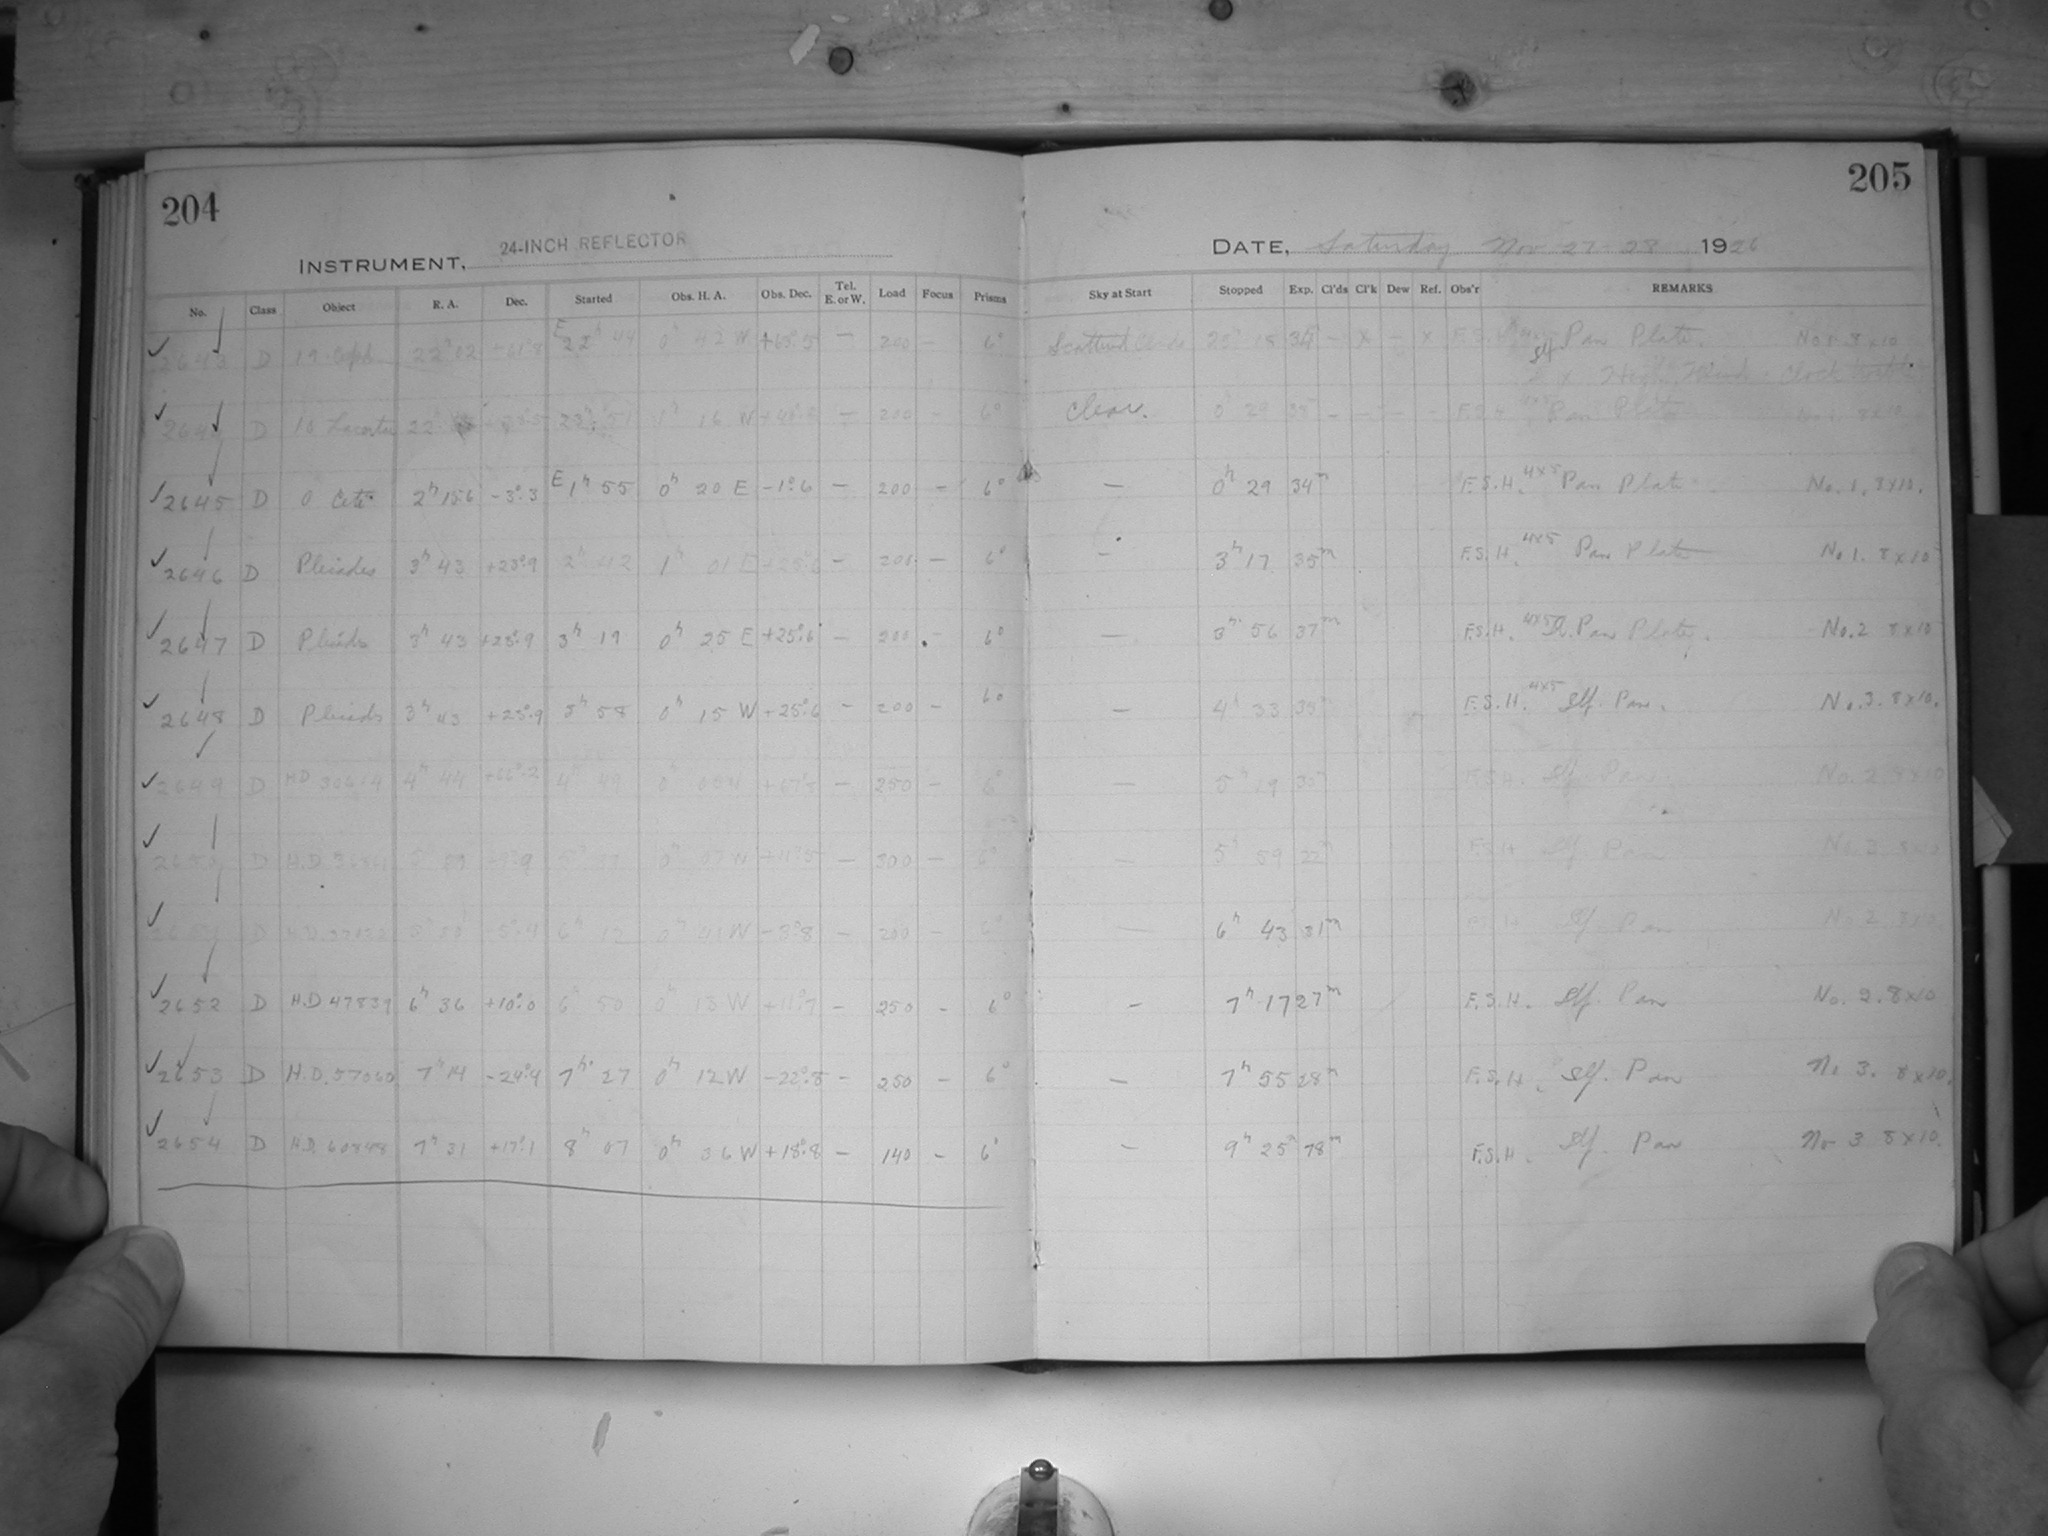 204
205
INSTRUMENT, 24-INCH REFLECTOR
DATE, Saturday Nov 27-28 1926
No. Class Object R. A. Dec. Started Obs. H. A. Obs. Dec. Tel. E. or W. Load Focus Prisms Sky at Start Stopped Exp. Cl'ds Cl'k Dew Ref. Obs'r REMARKS
2643 D 19 22 02 E 22h 44 0h 42 W — 200 — 6° Scattered Clouds 15 — x — x F.S.H. 4x5 Pan Plate. No 1 8x10
Self x High Wind Clock
D 10 22 1h 16 W — 200 — 6° Clear. 0 29 — — — — F.S.H. 4x5 Pan Plate 8x10
2645 D O Ceti 2h 15.6 -3°.3 E 1h 55 0h 20 E -1°.6 — 200 — 6° — 0h 29 34m F.S.H. 4x5 Pan Plate No. 1. 8x10.
2646 D Pleiades 3h 43 +23°.9 2h 42 1h 01 E — 200 — 6° — 3h 17 35m F.S.H. 4x5 Pan Plate No 1. 8x10
2647 D Pleiads 3h 43 +23°.9 3h 19 0h 25 E +25°.6 — 200 . 6° — 3h 56 37m F.S.H. 4x5 Pan Plate. No. 2 8x10
2648 D Pleiads 3h 43 +23°.9 3h 58 0h 15 W +25°.6 — 200 — 6° — 4h 33 35m F.S.H. 4x5 Self. Pan. No. 3. 8x10.
2649 D HD 30614 4h 44 +66°.2 4h 49 0h — 250 — 6° — 5h 19 30m F.S.H. Self Pan. No. 2 8x10
2650 D H.D. 0h 07 W — 300 — 6° — 5h 59 22m F.S.H. Self. Pan No 3 8x10
D H.D. 6h 12 0h 41 W -3°.8 — 200 — 6° — 6h 43 31m F.S.H Self Pan No 2 8x10
2652 D H.D 47839 6h 36 +10°.0 6h 50 0h 13 W +11°.7 — 250 - 6° — 7h 17 27m F.S.H. Self. Pan No. 2. 8x10
2653 D H.D. 57060 7h 14 -24°.4 7h 27 0h 12 W -22°.8 — 250 — 6° — 7h 55 28m F.S.H. Self. Pan No 3. 8x10.
2654 D H.D. 60848 7h 31 +17°.1 8h 07 0h 36 W +18°.8 — 140 — 6° — 9h 25 78m F.S.H. Self. Pan No 3 8x10.